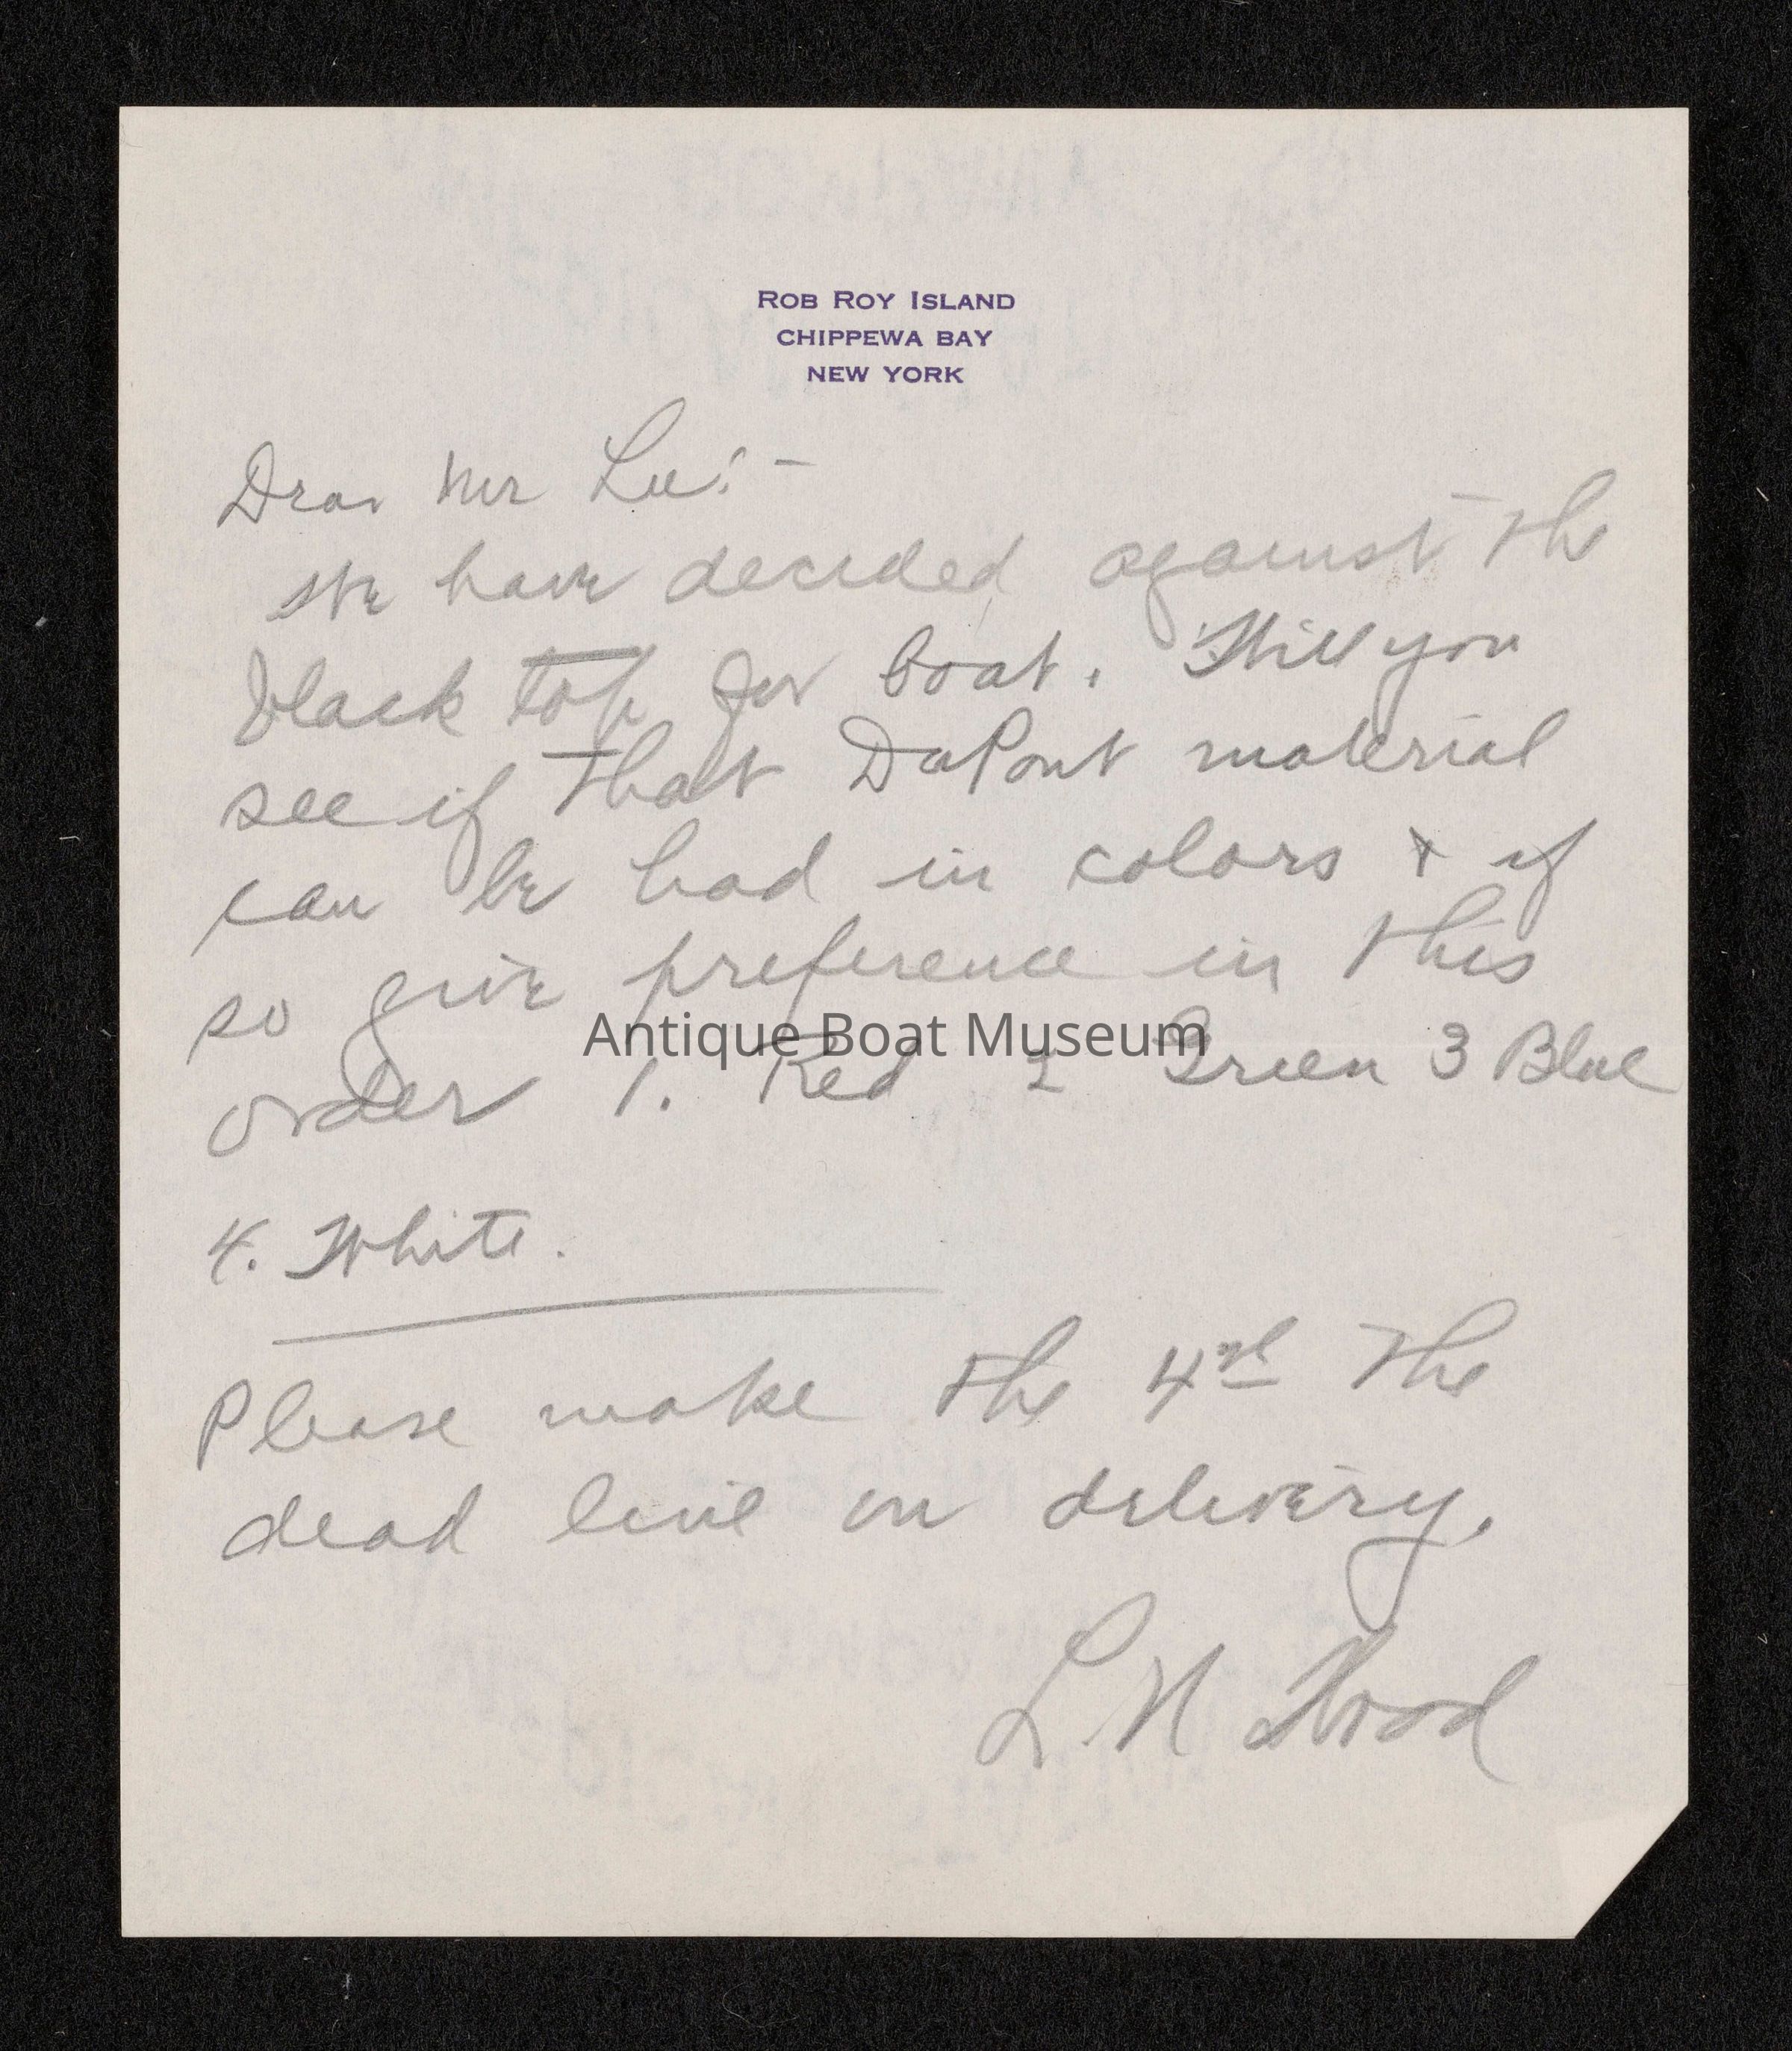 ROB ROY ISLAND
CHIPPEWA BAY
NEW YORK
Dear Mr Lee:-
We have decided against the
black top for boat. Will you
see if that DuPont material
can be had in colors & if
so give preference in this
Antique Boat Museum
order 1. Red 2 Green 3 Blue
4. White.
Please make the 4th the
dead line on delivery.
L N Wood